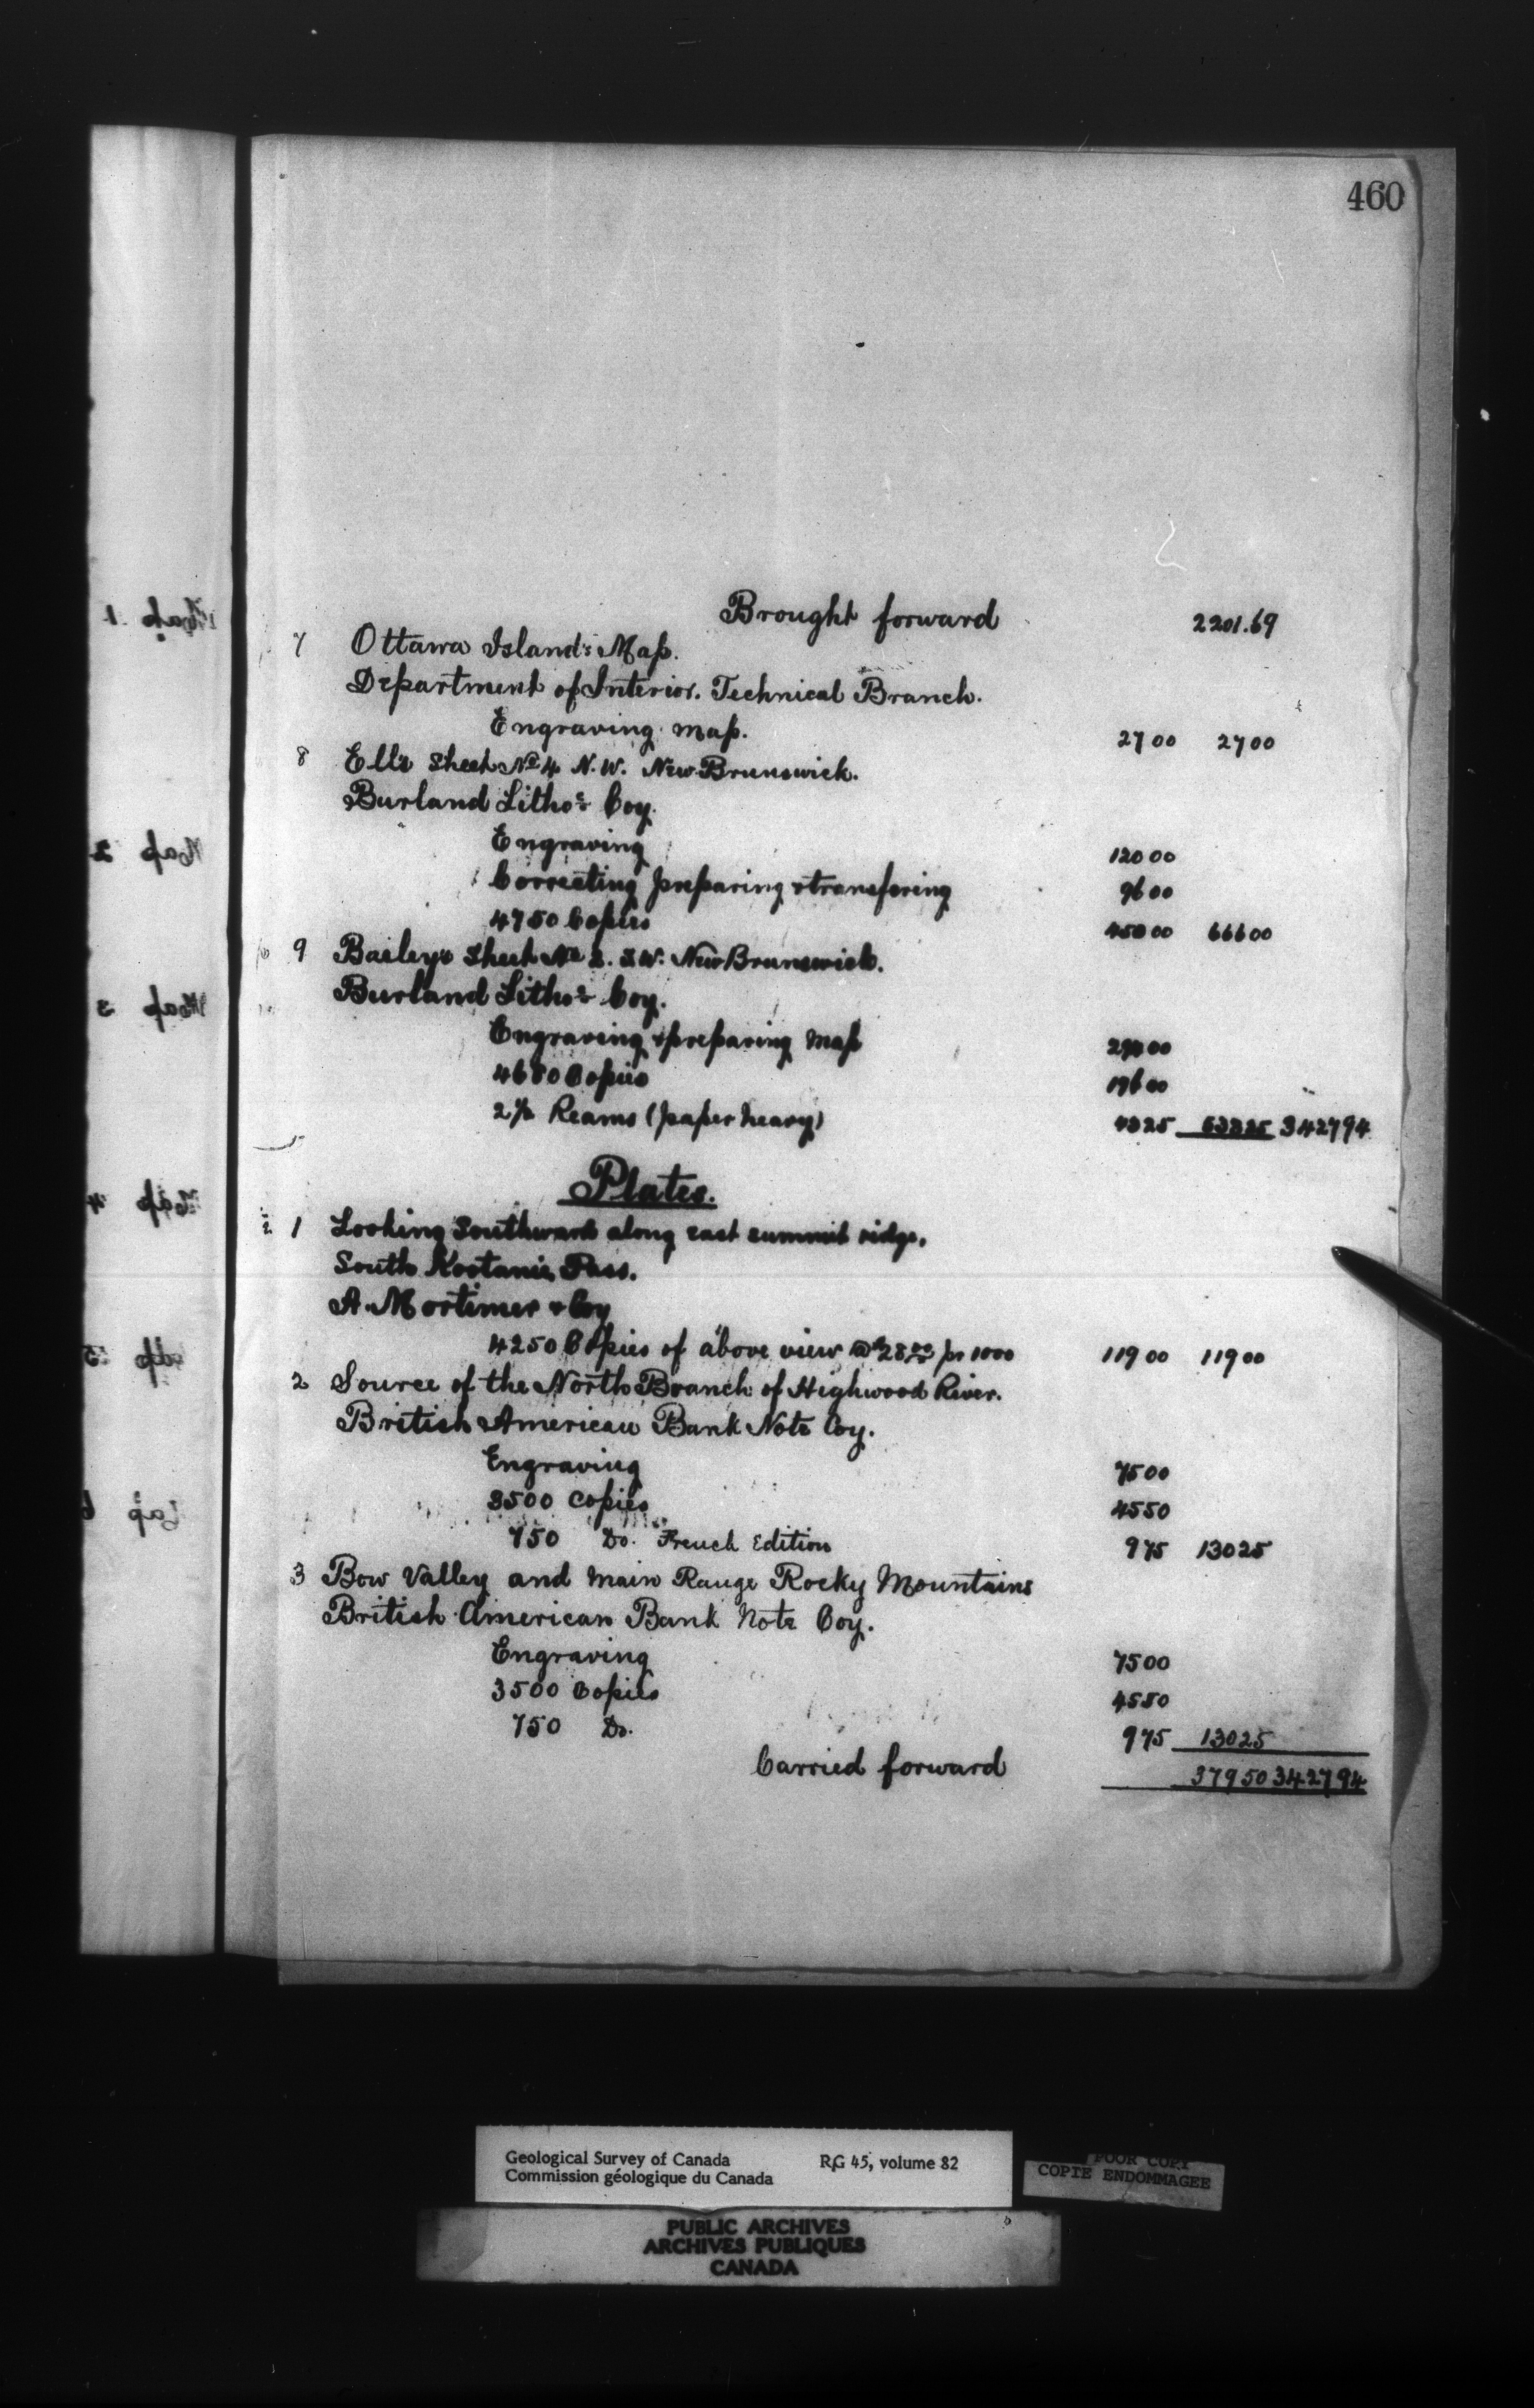 460
Brought forward 2201.69
7 Ottawa Island's Map.
Department of Interior. Technical Branch.
Engraving map. 27 00 27 00
8 Ells Sheet No 4 N.W. New Brunswick.
Burland Litho: Coy.
Engraving 120 00
Correcting preparing & transfering 96 00
4750 Copies 450 00 666 00
9 Bailey's Sheet No 2. S.W. New Brunswick.
Burland Litho: Coy.
Engraving & preparing Map
4680 Copies 196 00
2½ Reams (paper heavy) 43 25 533 25 3427 94
Plates.
1 Looking Southward along east summit ridge,
South Kootanie Pass.
A. Mortimer & Coy
4250 Copies of above view @ $28 00 pr 1000 119 00 119 00
2 Source of the North Branch of Highwood River.
British American Bank Note Coy.
Engraving 75 00
3500 Copies 45 50
750 Do. French Edition 9 75 130 25
3 Bow Valley and Main Range Rocky Mountains
British American Bank Note Coy.
Engraving 75 00
3500 Copies 45 50
750 Do. 9 75 130 25
Carried forward 379 50 3427 94
Map 1
Map 2
Map 3
Map 4
Geological Survey of Canada RG 45, volume 82
Commission géologique du Canada
POOR COPY
COPIE ENDOMMAGEE
PUBLIC ARCHIVES
ARCHIVES PUBLIQUES
CANADA